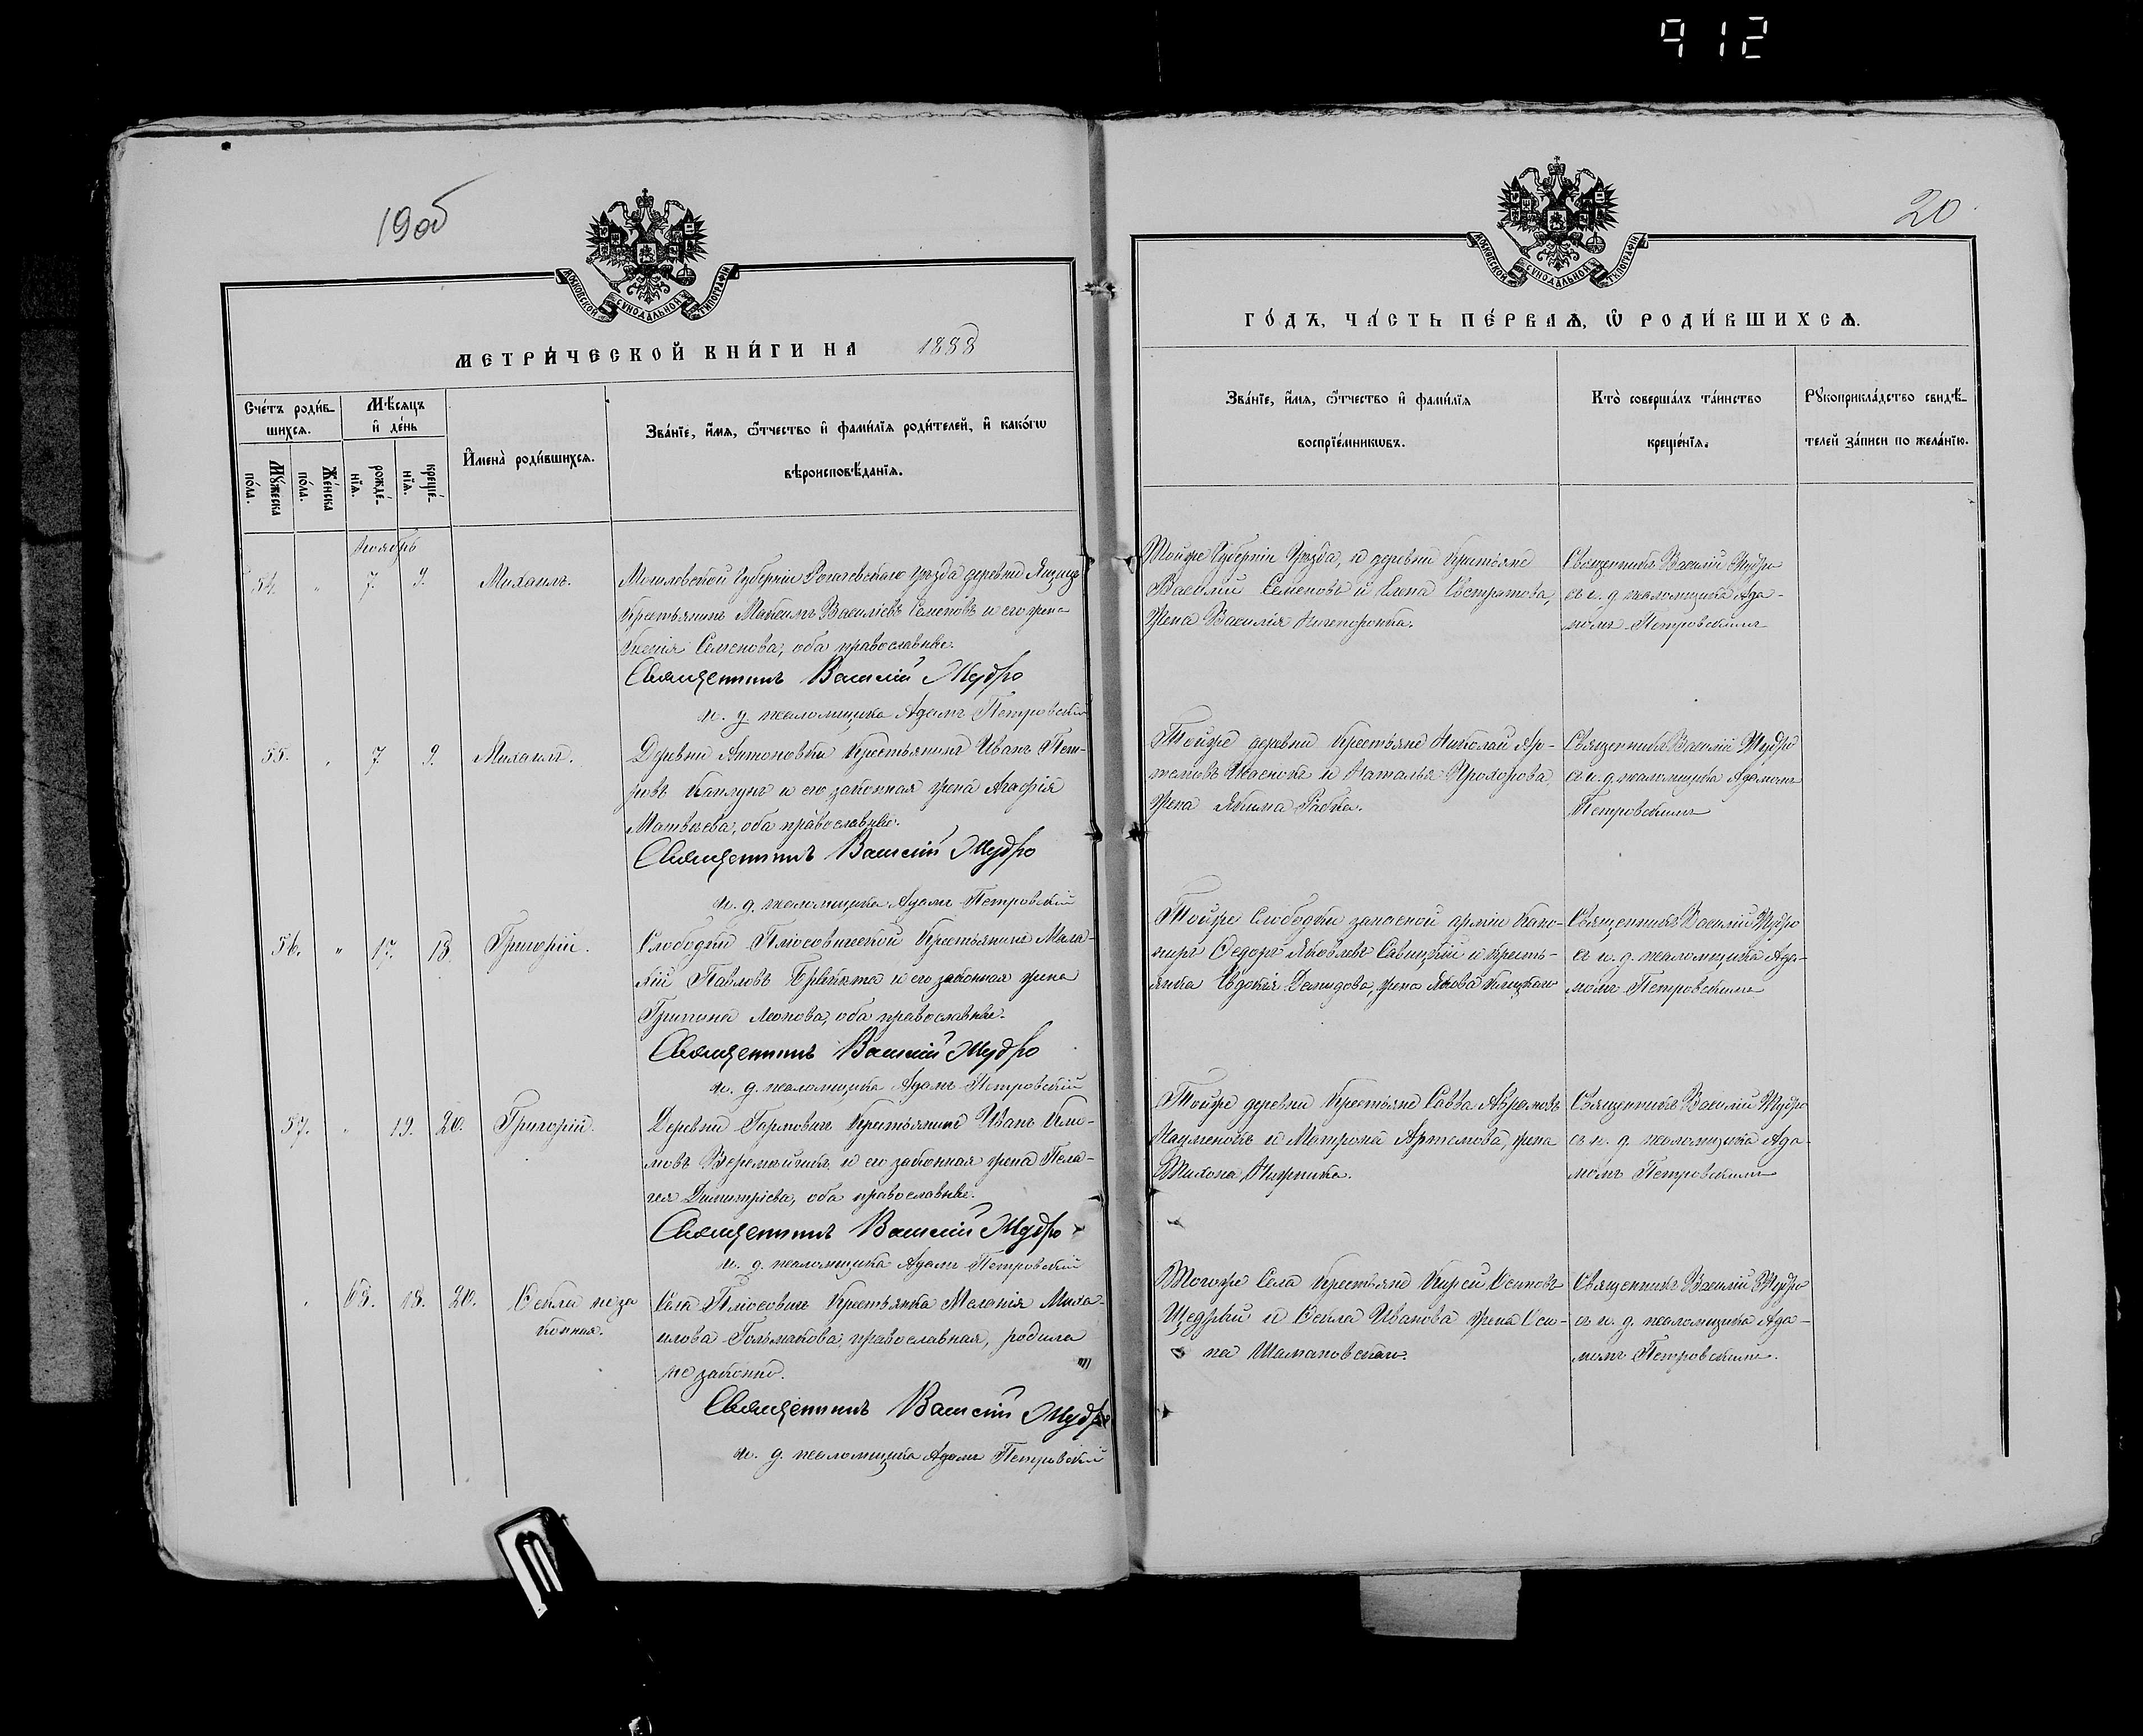 912
19 об
МОСКОВСКОЙ СУНОДАЛЬНОЙ ТИПОГРАФІИ
МЕТРИ́ЧЕСКОЙ КНИ́ГИ НА 1888
Сче́тъ роди́в-
шихсѧ.
Мѣ́сяцъ
и҆ де́нь
Мꙋ́жеска
по́ла.
Же́нска
по́ла.
рожде́-
нїѧ.
креще́-
нїѧ.
И҆мена̀ роди́вшихсѧ.
Зва́нїе, и҆́мѧ, ѻ҆́тчество и҆ фами́лїѧ роди́телей, и҆ како́гѡ
вѣроисповѣ́данїѧ.
Ноябрь
54. " 7. 9. Михаилъ. Могилевской Губерніи Рогачевскаго уѣзда деревни
Крестьянинъ Максимъ Василіевъ Семеновъ и его жена
Ксенія Семенова, оба православные.
Священникъ Василій Мудро
и. д. псаломщика Адамъ Петровскій
55. " 7 9. Михаилъ. Деревни Антоновки Крестьянинъ Иванъ Пет-
ровъ Каплунъ и его законная жена Агафія
Матвѣева, оба православные.
Священникъ Василій Мудро
и. д. псаломщика Адамъ Петровскій
56. " 17. 18. Григорій. Слободки Плюсовичской Крестьянинъ Мала-
хій Павловъ и его законная жена
Грипина Леонова, оба православные.
Священникъ Василій Мудро
и. д. псаломщика Адамъ Петровскій
57. " 19. 20. Григорій. Деревни Гармовичъ Крестьянинъ Иванъ Кли-
мовъ и его законная жена Пела-
гея Димитріева, оба православные.
Священникъ Василій Мудро
и. д. псаломщика Адамъ Петровскій
" 63. 18. 20. Ѳекла неза
конная. Села Плюсовичъ Крестьянка Меланія Миха-
илова Гольмакова, православная, родила
незаконно.
Священникъ Василій Мудро
и. д. псаломщика Адамъ Петровскій
20
МОСКОВСКОЙ СУНОДАЛЬНОЙ ТИПОГРАФІИ
ГО́ДЪ, ЧА́СТЬ ПЕ́РВАѦ, Ѽ РОДИ́ВШИХСѦ.
Зва́нїе, и҆́мѧ, ѻ҆́тчество и҆ фами́лїѧ
воспрїе́мникѡвъ.
Кто̀ соверша́лъ та́инство
креще́нїѧ.
Рꙋкоприкла́дство свидѣ́-
телей за́писи по жела́нїю.
Тойже Губерніи Уѣзда, и деревни Крестьяне
Василій Семеновъ и Елена Евстратова,
жена Василія Никепоронка.
Священникъ Василій Мудро
съ и. д. псаломщика Ада-
момъ Петровскимъ
Тойже деревни Крестьяне Николай Ар-
темовъ и Наталья Прохорова
жена Якима Рабка.
Священникъ Василій Мудро
съ и. д. псаломщика Адамомъ
Петровскимъ
Тойже Слободки запасной арміи Кано-
ниръ Ѳедоръ Яковлевъ Савицкій и Кресть-
янка Евдокія Демидова, жена Якова Клицкаго
Священникъ Василій Мудро
съ и. д. псаломщика Ада-
момъ Петровскимъ
Тойже деревни Крестьяне Савва Абрамовъ
Науменокъ и Матрона Артемова, жена
Тихона Нижника.
Священникъ Василій Мудро
съ и. д. псаломщика Ада-
момъ Петровскимъ
Тогоже Села Крестьяне Кирей Осиповъ
Щедрый и Ѳекла Иванова жена Оси-
па Шамановскаго.
Священникъ Василій Мудро
съ и. д. псаломщика Ада-
момъ Петровскимъ.